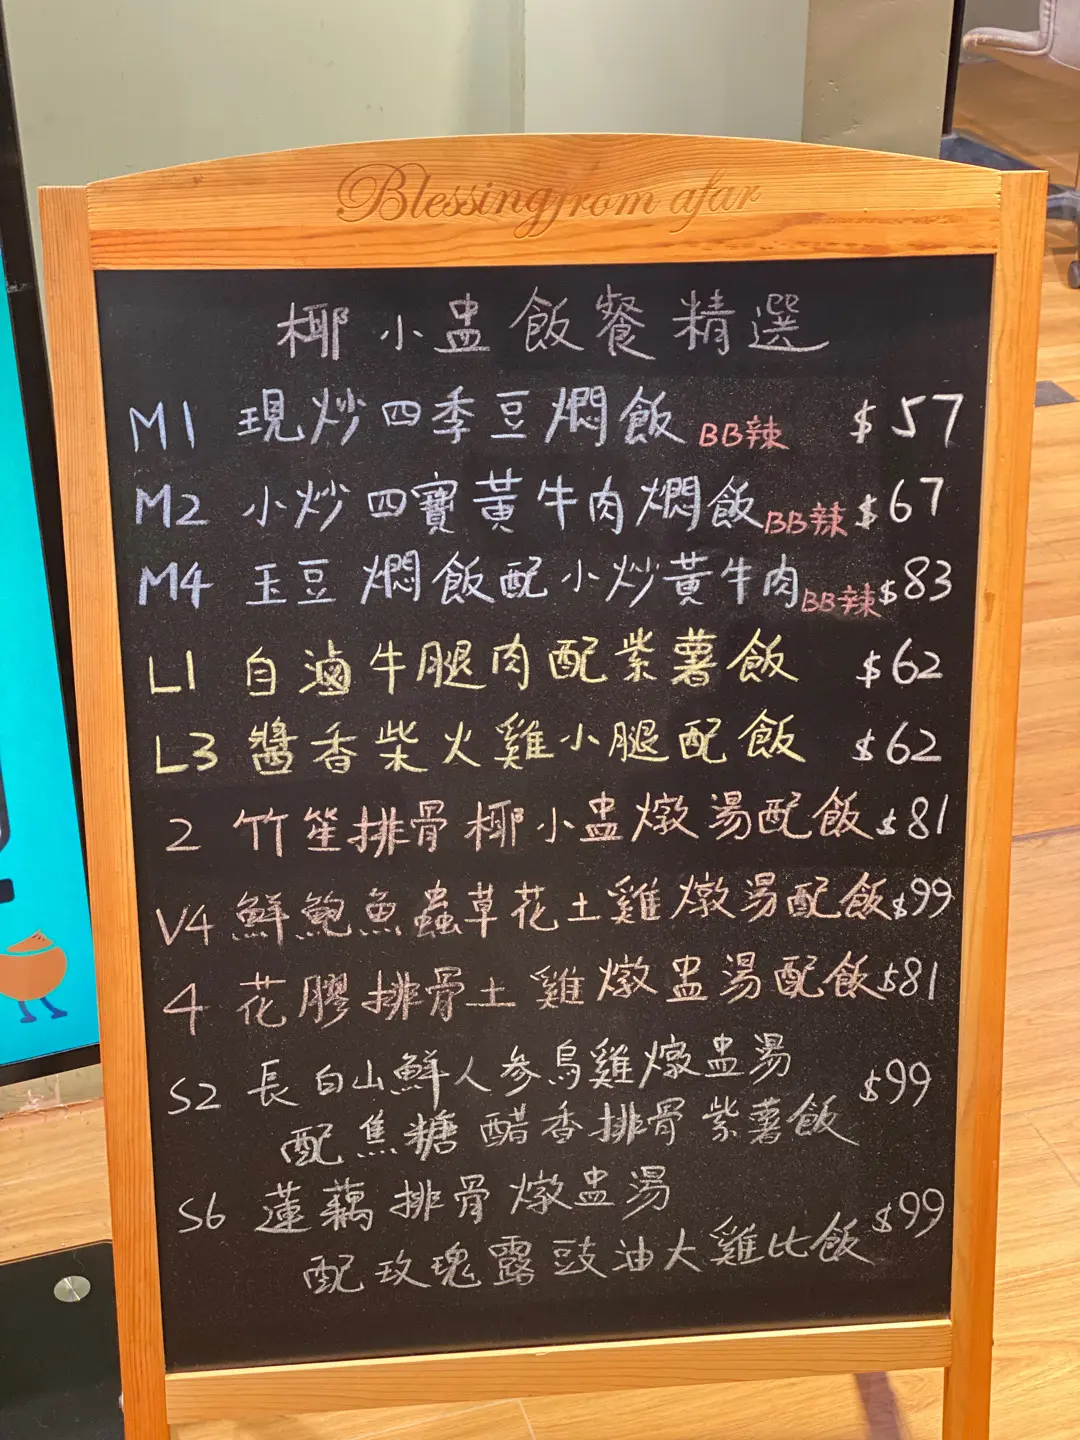 Blessing from afar
椰小盅飯餐精選
M1 現炒四季豆燜飯 BB辣 $57
M2 小炒四寶黃牛肉燜飯 BB辣 $67
M4 玉豆燜飯配小炒黃牛肉 BB辣 $83
L1 白滷牛腿肉配紫薯飯 $62
L3 醬香柴火雞小腿配飯 $62
2 竹笙排骨椰小盅燉湯配飯 $81
V4 鮮鮑魚蟲草花土雞燉湯配飯 $99
4 花膠排骨土雞燉盅湯配飯 $81
S2 長白山鮮人参烏雞燉盅湯 $99
配焦糖醋香排骨紫薯飯
S6 蓮藕排骨燉盅湯 $99
配玫瑰露豉油大雞比飯